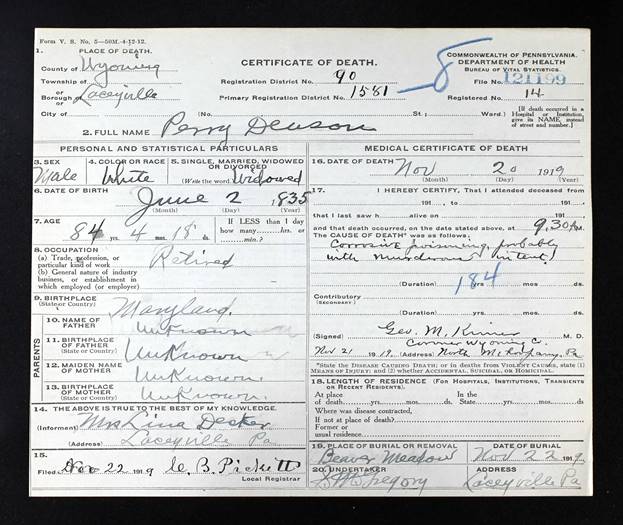 Form V. S. No. 5—50M-4-12-12.
1. PLACE OF DEATH.
County of Wyoming
Township of
or
Borough of Laceyville
or
City of
CERTIFICATE OF DEATH.
Registration District No. 90
Primary Registration District No. 1581
(No. St; Ward.)
8
COMMONWEALTH OF PENNSYLVANIA
DEPARTMENT OF HEALTH
BUREAU OF VITAL STATISTICS.
File No. 121199
Registered No. 14
[If death occurred in a Hospital or Institution, give its NAME, instead of street and number.]
2. FULL NAME Perry Denson
PERSONAL AND STATISTICAL PARTICULARS
3. SEX
Male
4. COLOR OR RACE
White
5. SINGLE, MARRIED, WIDOWED OR DIVORCED
(Write the word) Widowed
6. DATE OF BIRTH
June 2 1835
(Month) (Day) (Year)
7. AGE
84 yrs. 4 mos. 18 ds.
If LESS than 1 day how many hrs. or min.?
8. OCCUPATION
(a) Trade, profession, or particular kind of work
Retired
(b) General nature of industry business, or establishment in which employed (or employer)
9. BIRTHPLACE
(State or Country)
Maryland.
PARENTS
10. NAME OF FATHER
Unknown
11. BIRTHPLACE OF FATHER
(State or Country)
Unknown
12. MAIDEN NAME OF MOTHER
Unknown.
13. BIRTHPLACE OF MOTHER
(State or Country)
Unknown.
14. THE ABOVE IS TRUE TO THE BEST OF MY KNOWLEDGE.
(Informant) Mrs Lina Decker
(Address) Laceyville Pa
15.
Filed Nov 22 1919 C. B. Pickett
Local Registrar
MEDICAL CERTIFICATE OF DEATH
16. DATE OF DEATH
Nov 20 1919
(Month) (Day) (Year)
17. I HEREBY CERTIFY, That I attended deceased from
191 , to 191 ,
that I last saw h alive on 191
and that death occurred, on the date stated above, at 9,30 P.M.
The CAUSE OF DEATH* was as follows:
Corrosive poisoning, probably
with murderous intent
(Duration) yrs. mos. ds.
184
Contributory
(SECONDARY)
(Duration) yrs. mos. ds.
(Signed) Geo. M. Kinner M. D.
Coroner Wyoming C.
Nov 21 1919. (Address) North Mehoopany, Pa
*State the DISEASE CAUSING DEATH; or in deaths from VIOLENT CAUSES, state (1) MEANS OF INJURY; and (2) whether ACCIDENTAL, SUICIDAL, OR HOMICIDAL.
18. LENGTH OF RESIDENCE (FOR HOSPITALS, INSTITUTIONS, TRANSIENTS OR RECENT RESIDENTS).
At place of death yrs. mos. ds. In the State yrs. mos. ds.
Where was disease contracted, if not at place of death?
Former or usual residence
19. PLACE OF BURIAL OR REMOVAL
Beaver Meadow
DATE OF BURIAL
Nov 22 1919
20. UNDERTAKER
McGregory
ADDRESS
Laceyville Pa